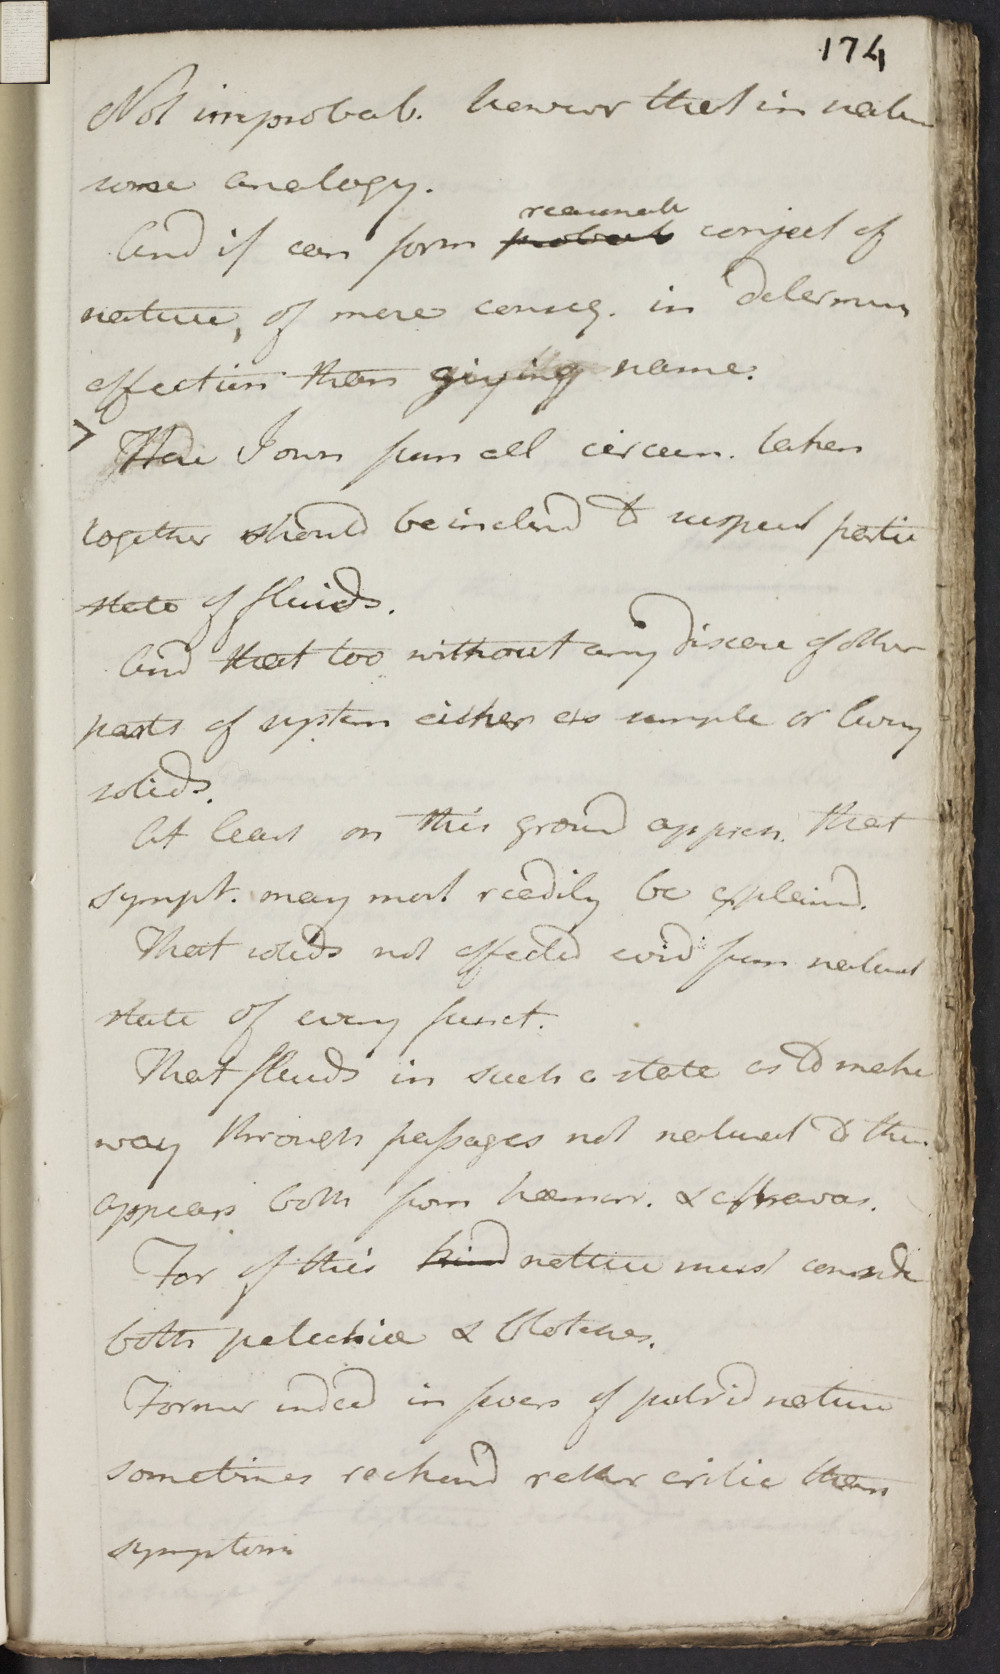 174
Not improbab. however that in natur
some analogy.
And if can form reasonab conject of
probab
nature, of more conseq. in determin
affection than giving name.
> Here I own from all circum. taken
together should be inclind to suspect partic
state of fluids.
And that too without any disease of other
parts of system either as simple or living
solids.
At least on this ground appreh. that
sympt. may most readily be explaind.
That solids not affected evid from natural
state of every funct.
That fluids in such a state as to make
way through passages not natural to them
appears both from hæmorr. & extravas.
For of this kind nature must conside
both petechiæ & blotches.
Former indeed in fevers of putrid nature
sometimes reckond rather critic than
symptom